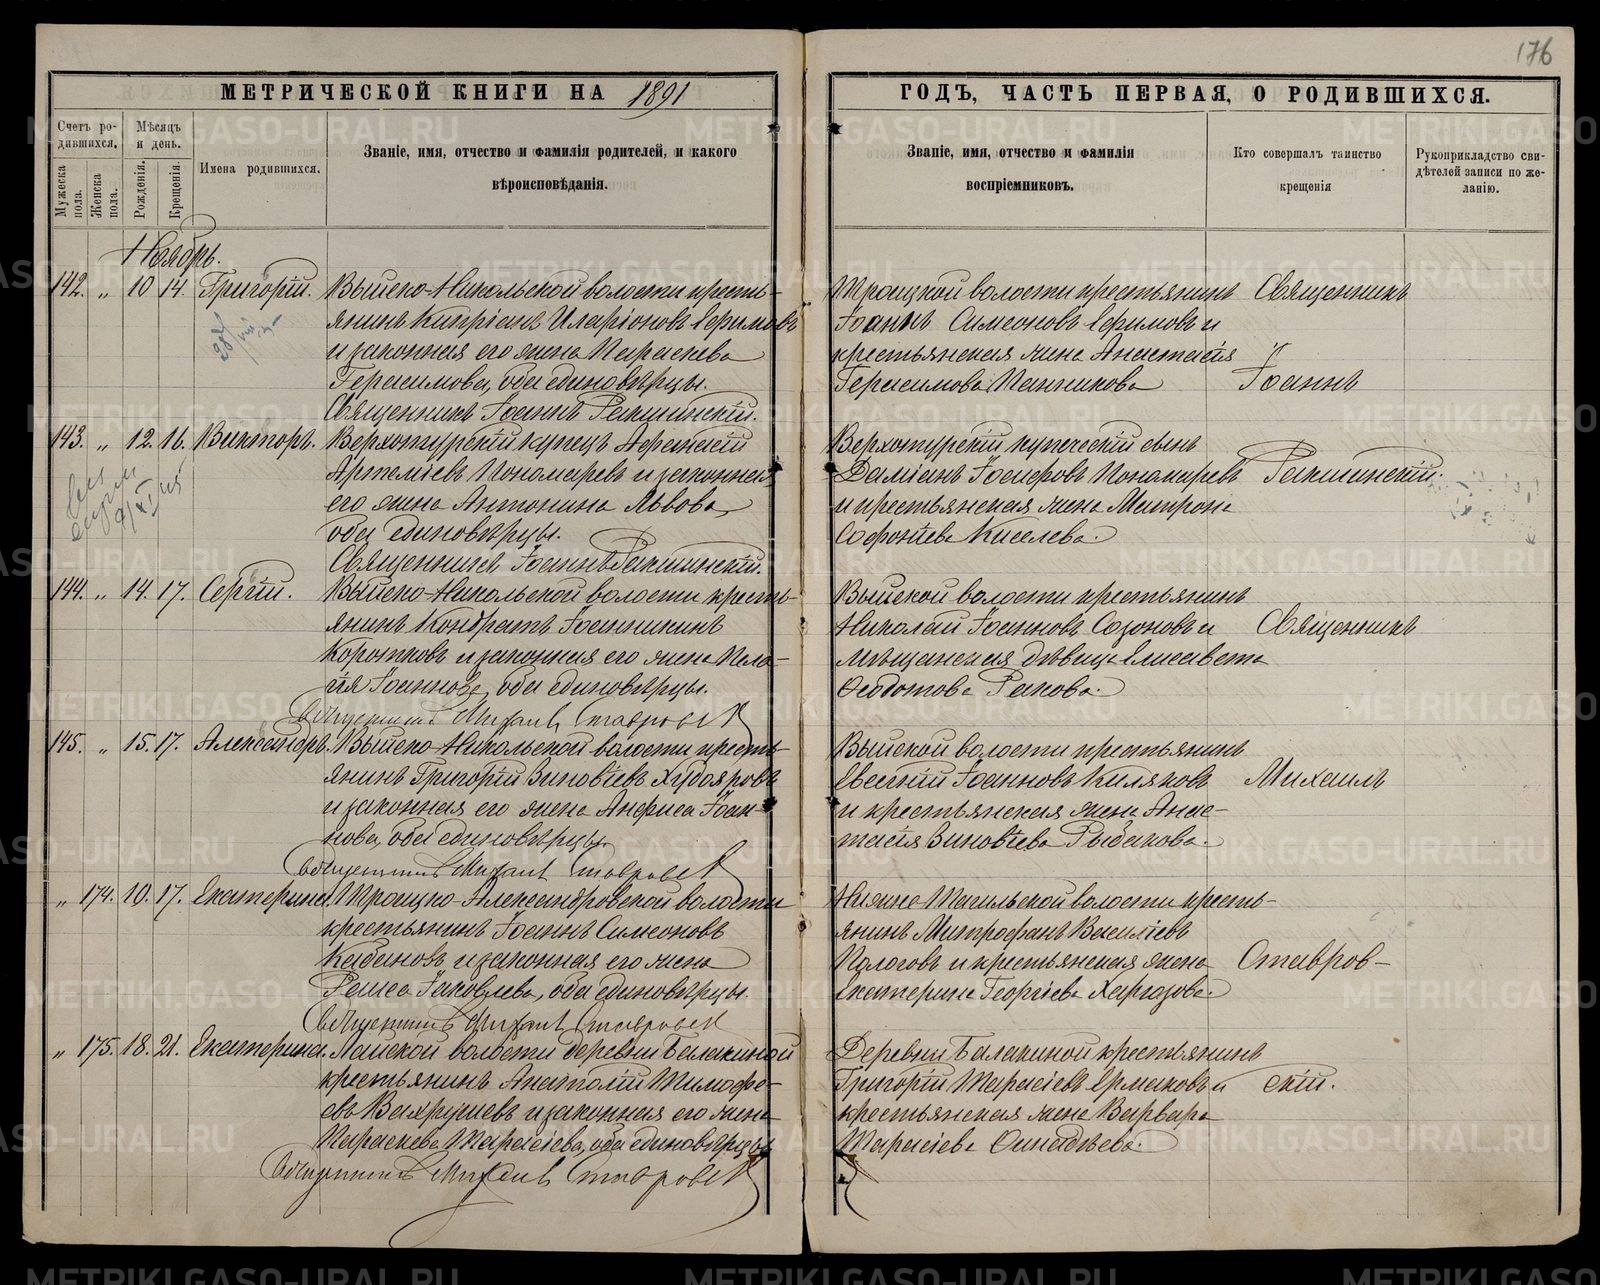 176
МЕТРИЧЕСКОЙ КНИГИ НА 1891
ГОДЪ, ЧАСТЬ ПЕРВАЯ, О РОДИВШИХСЯ.
Счетъ ро-
дившихся.
Мужеска пола.
Женска пола.
Мѣсяцъ
и день.
Рожденія.
Крещенія.
Имена родившихся.
Званіе, имя, отчество и фамилія родителей, и какого
вѣроисповѣданія.
Званіе, имя, отчество и фамилія
воспріемниковъ.
Кто совершалъ таинство
крещенія
Рукоприкладство сви-
дѣтелей записи по же-
ланію.
Ноябрь.
142. „ 10 14. Григорій. Выйско-Никольской волости кресть-
янинъ Кипріанъ Иларіоновъ Ефимовъ
и законная его жена Параскева
Герасимова, оба единовѣрцы.
Священникъ Іоаннъ
Троицкой волости крестьянинъ
Іоаннъ Симеоновъ Ефимовъ и
крестьянская жена Анастасія
Герасимова
Священникъ
Іоаннъ
143. „ 12. 16. Викторъ. Верхотурскій купецъ
Артеміевъ Пономаревъ и законная
его жена Антонина Львова,
оба единовѣрцы.
Священникъ Іоаннъ
Верхотурскій купеческій сынъ
Даміанъ Іосифовъ Пономаревъ
и крестьянская жена Матрона
Софоніева Киселева.
144. „ 14. 17. Сергій. Выйско-Никольской волости кресть-
янинъ Кондратъ
Коротковъ и законная его жена Пела-
гія Іоаннова, оба единовѣрцы.
Священникъ Михаилъ Ставровск
Выйской волости крестьянинъ
Николай Іоанновъ Созоновъ и
мѣщанская дѣвица Елисавета
Ѳеодотова
Священникъ
145. „ 15. 17. Александръ. Выйско-Никольской волости кресть-
янинъ Григорій Зиновіевъ Худояровъ
и законная его жена Анфиса Іоан-
нова, оба единовѣрцы.
Священникъ Михаилъ Ставровск
Выйской волости крестьянинъ
Евсевій Іоанновъ
и крестьянская жена Анас-
тасія Зиновіева Рыбакова.
Михаилъ
„ 174. 10. 17. Екатерина. Троицко-Александровской волости
крестьянинъ Іоаннъ Симеоновъ
Кабановъ и законная его жена
Раиса Іаковлева, оба единовѣрцы.
Священникъ Михаилъ Ставровск
Нижне-Тагильской волости кресть-
янинъ Митрофанъ Василіевъ
Пологовъ и крестьянская жена
Екатерина Георгіева
Ставров-
„ 175. 18. 21. Екатерина. Лайской волости деревни Балакиной
крестьянинъ Анатолій Тимофе-
евъ Вахрушевъ и законная его жена
Параскева Тарасіева, оба единовѣрцы.
Священникъ Михаилъ Ставровск
Деревни Балакиной крестьянинъ
Григорій Тарасіевъ Ермаковъ и
крестьянская жена Варвара
Тарасіева
скій.
METRIKI.GASO-URAL.RU